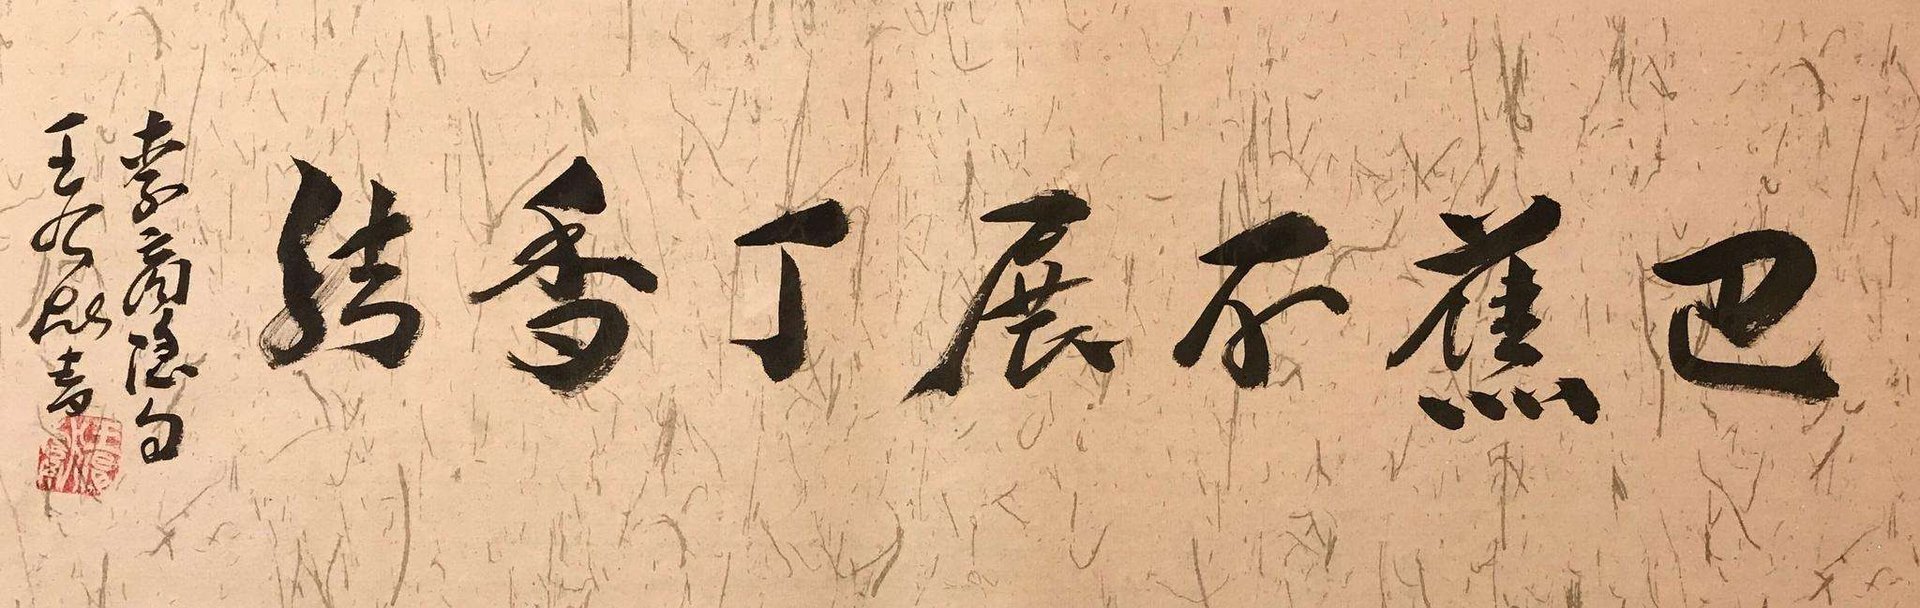 巴蕉不展丁香结
李商隐句
王
书